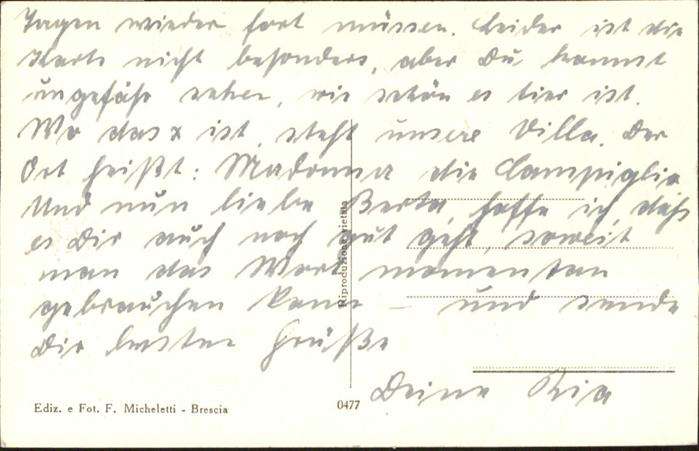 Tagen wieder fort müssen. Leider ist die
Karte nicht besonders, aber Du kannst
ungefähr sehen, wie schön es hier ist.
Wo das x ist, steht unsere Villa. Der
Ort heißt: Madonna die Campiglio
Und nun liebe Berta, hoffe ich, daß
es Dir auch noch gut geht, soweit
man das Wort momentan
gebrauchen kann – und sende
Dir besten Grüße
Deine Ria
Riproduzione vietata
Ediz. e Fot. F. Micheletti - Brescia
0477